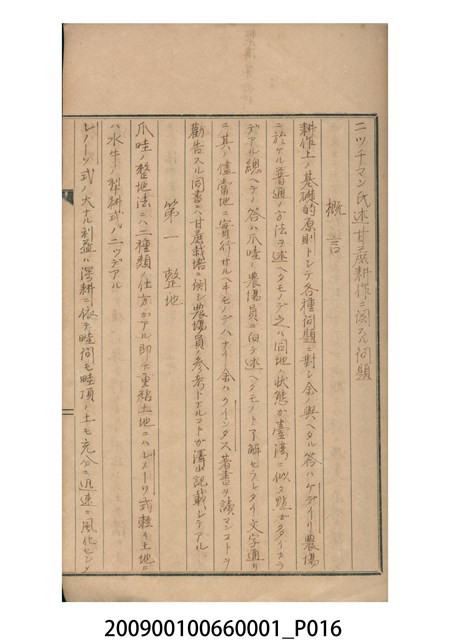 ニツチマン氏述甘蔗耕作ニ関スル問題
概言
耕作上ノ基礎的原則トシテ各種問題ニ対シ余ノ與ヘタル答ハケデイリ農場
ニ於ケル普通ノ方法ヲ述ヘタモノデ之ハ同地ノ状態ガ臺湾ニ似タ點ガ多イカラ
デアル總ヘテノ答ハ爪哇ノ農場員ニ向テ述ヘタモノト了解セラレタイ文字通リ
ニ其ノ儘當地ニ實行サルヘキモノデハナイ余ハクインタス著書ヲ讀マンコトヲ
勸告スル同書ハ甘蔗栽培ニ関シ農場員ノ参考トナルコトガ澤山記載シテアル
第一 整地
爪哇ノ整地法ニハ二種類ノ仕方ガアル即チ重粘土地ニハレノーソ式軽キ土地ニ
ハ水牛ノ犁耕式ノ二ツデアル
レノーソ式ノ大ナル利益ハ深耕ニ依テ畦間モ畦頂ノ土モ充分ニ迅速ニ風化セシメ
200900100660001_P016